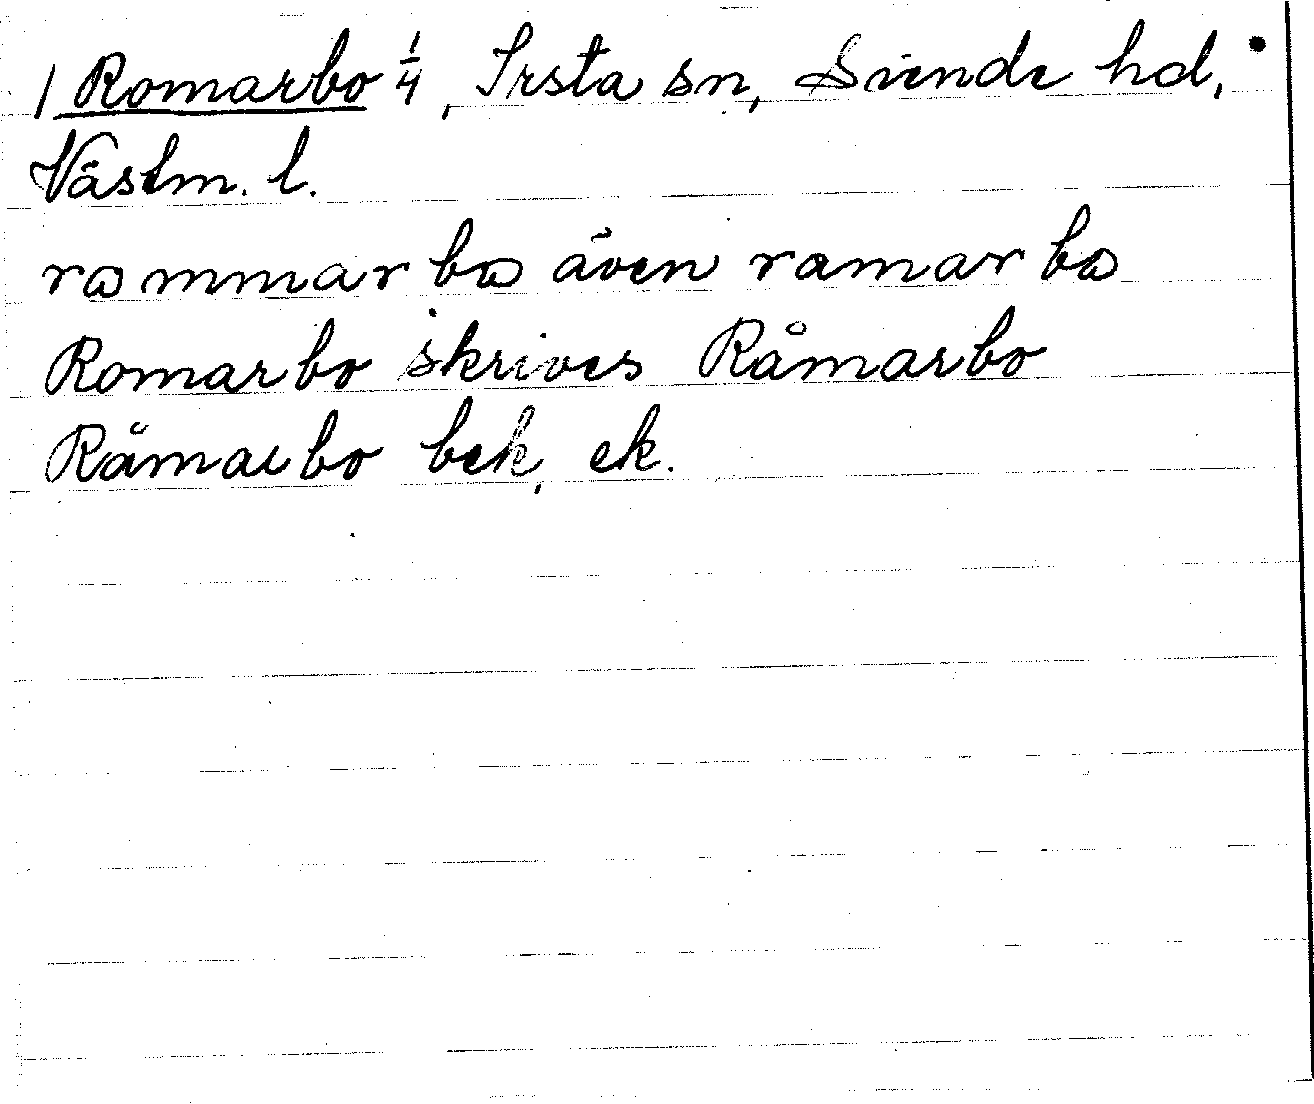 1 Romarbo 1/4, Irsta sn, Siende hd,
Västm. l.
rammarba även ramarba
Romarbo skrives Råmarbo
Råmarbo bek, ek.